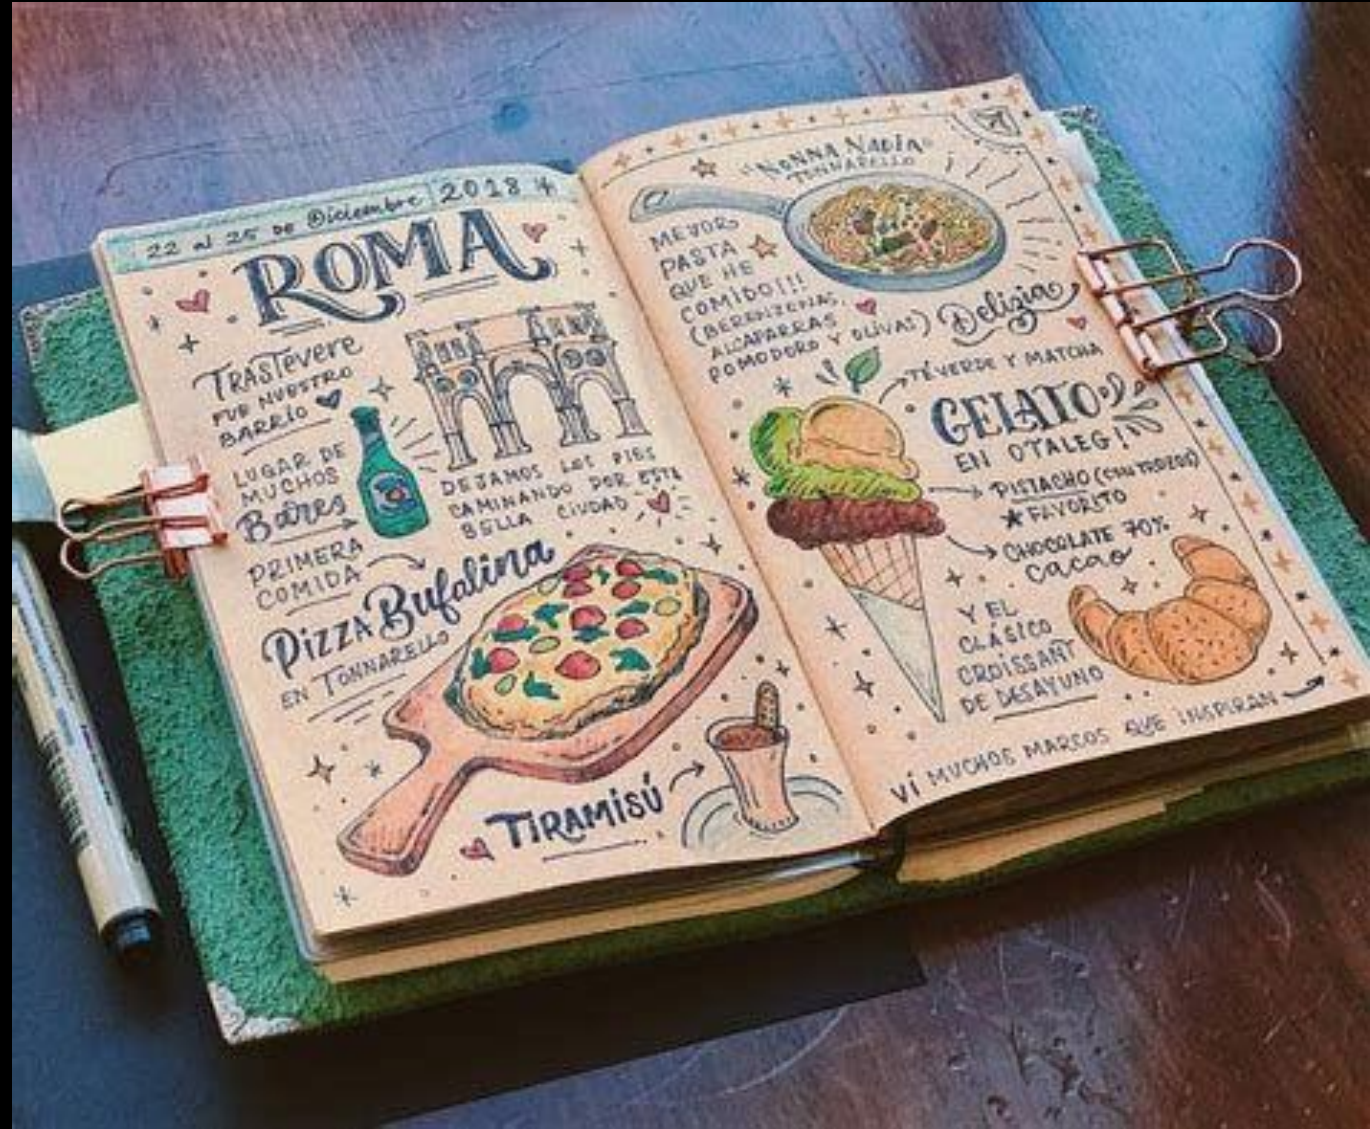 22 al 25 DE Diciembre 2018
ROMA
TRASTEVERE
FUE NUESTRO
BARRIO
LUGAR DE
MUCHOS
Bares
DEJAMOS LOS PIES
CAMINANDO POR ESTA
BELLA CIUDAD
PRIMERA
COMIDA
PIZZA Bufalina
EN TONNARELLO
TIRAMISÚ
"NONNA NADIA"
TONNARELLO
MEYOR
PASTA
QUE HE
COMIDO!!!
(BERENZENAS,
ALCAPARRAS
POMODORO Y OLIVAS)
Delizia
TÉ VERDE Y MATCHA
GELATO
EN OTALEG!
PISTACHO (CON TROZOS)
FAVORITO
CHOCOLATE 70%
cacao
Y EL
CLÁSICO
CROISSANT
DE DESAYUNO
Vi MUCHOS MARCOS QUE INSPIRAN